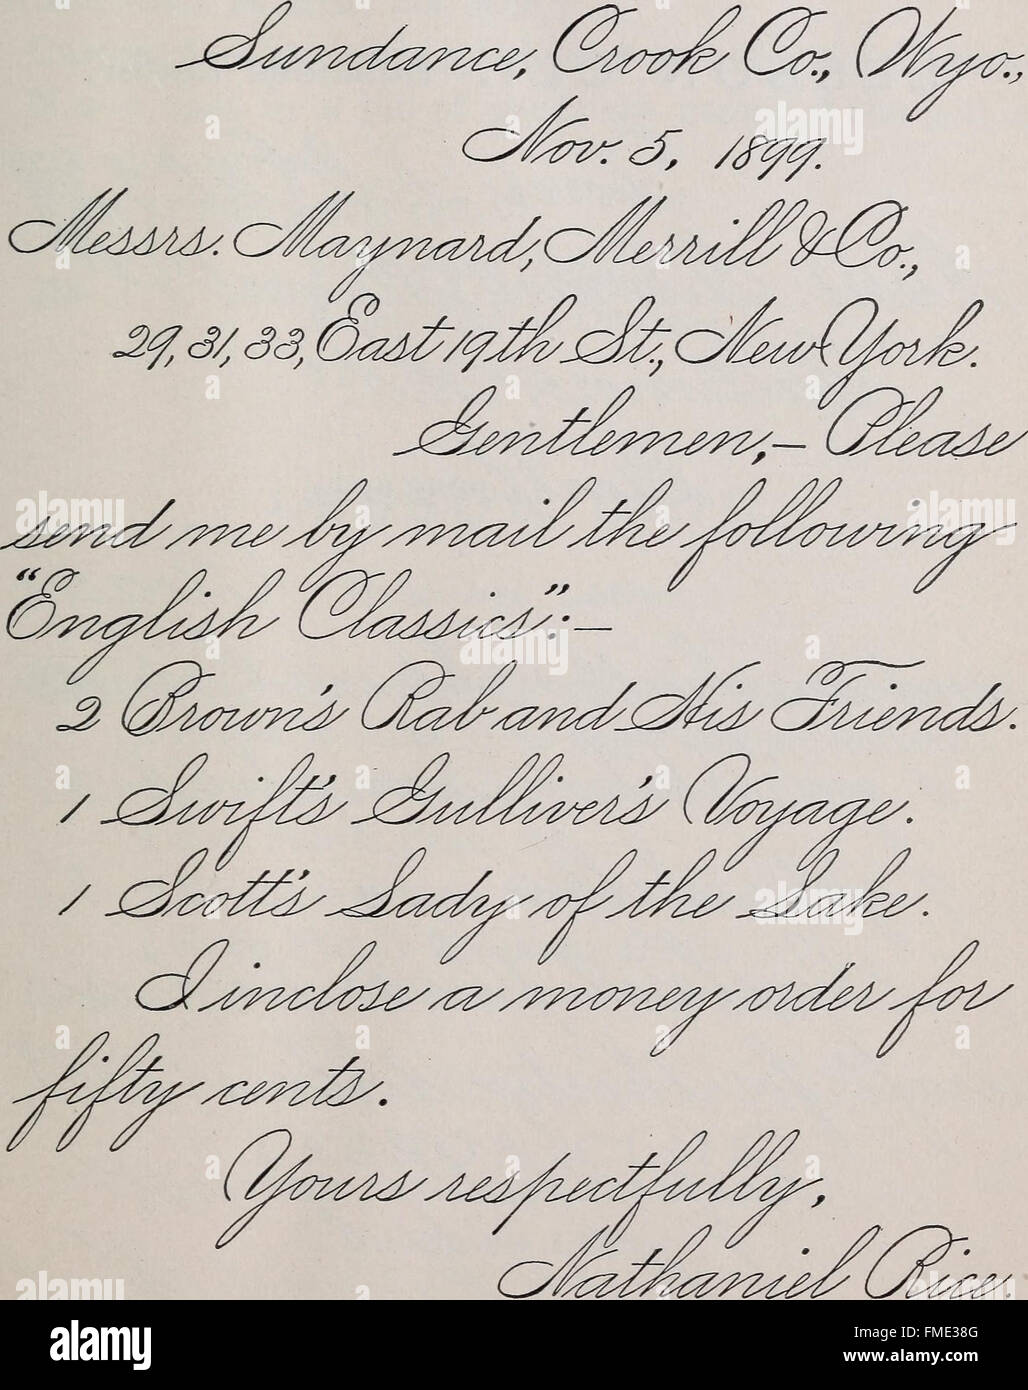 Sundance, Crook Co., Wyo.,
Nov. 5, 1899.
Messrs. Maynard, Merrill & Co.,
29, 31, 33, East 19th St., New York.
Gentlemen,— Please
send me by mail the following
"English Classics":—
2 Brown's Rab and His Friends.
1 Swift's Gulliver's Voyage.
1 Scott's Lady of the Lake.
I inclose a money order for
fifty cents.
Yours respectfully,
Nathaniel Rice.
alamy
Image ID: FME38G
www.alamy.com